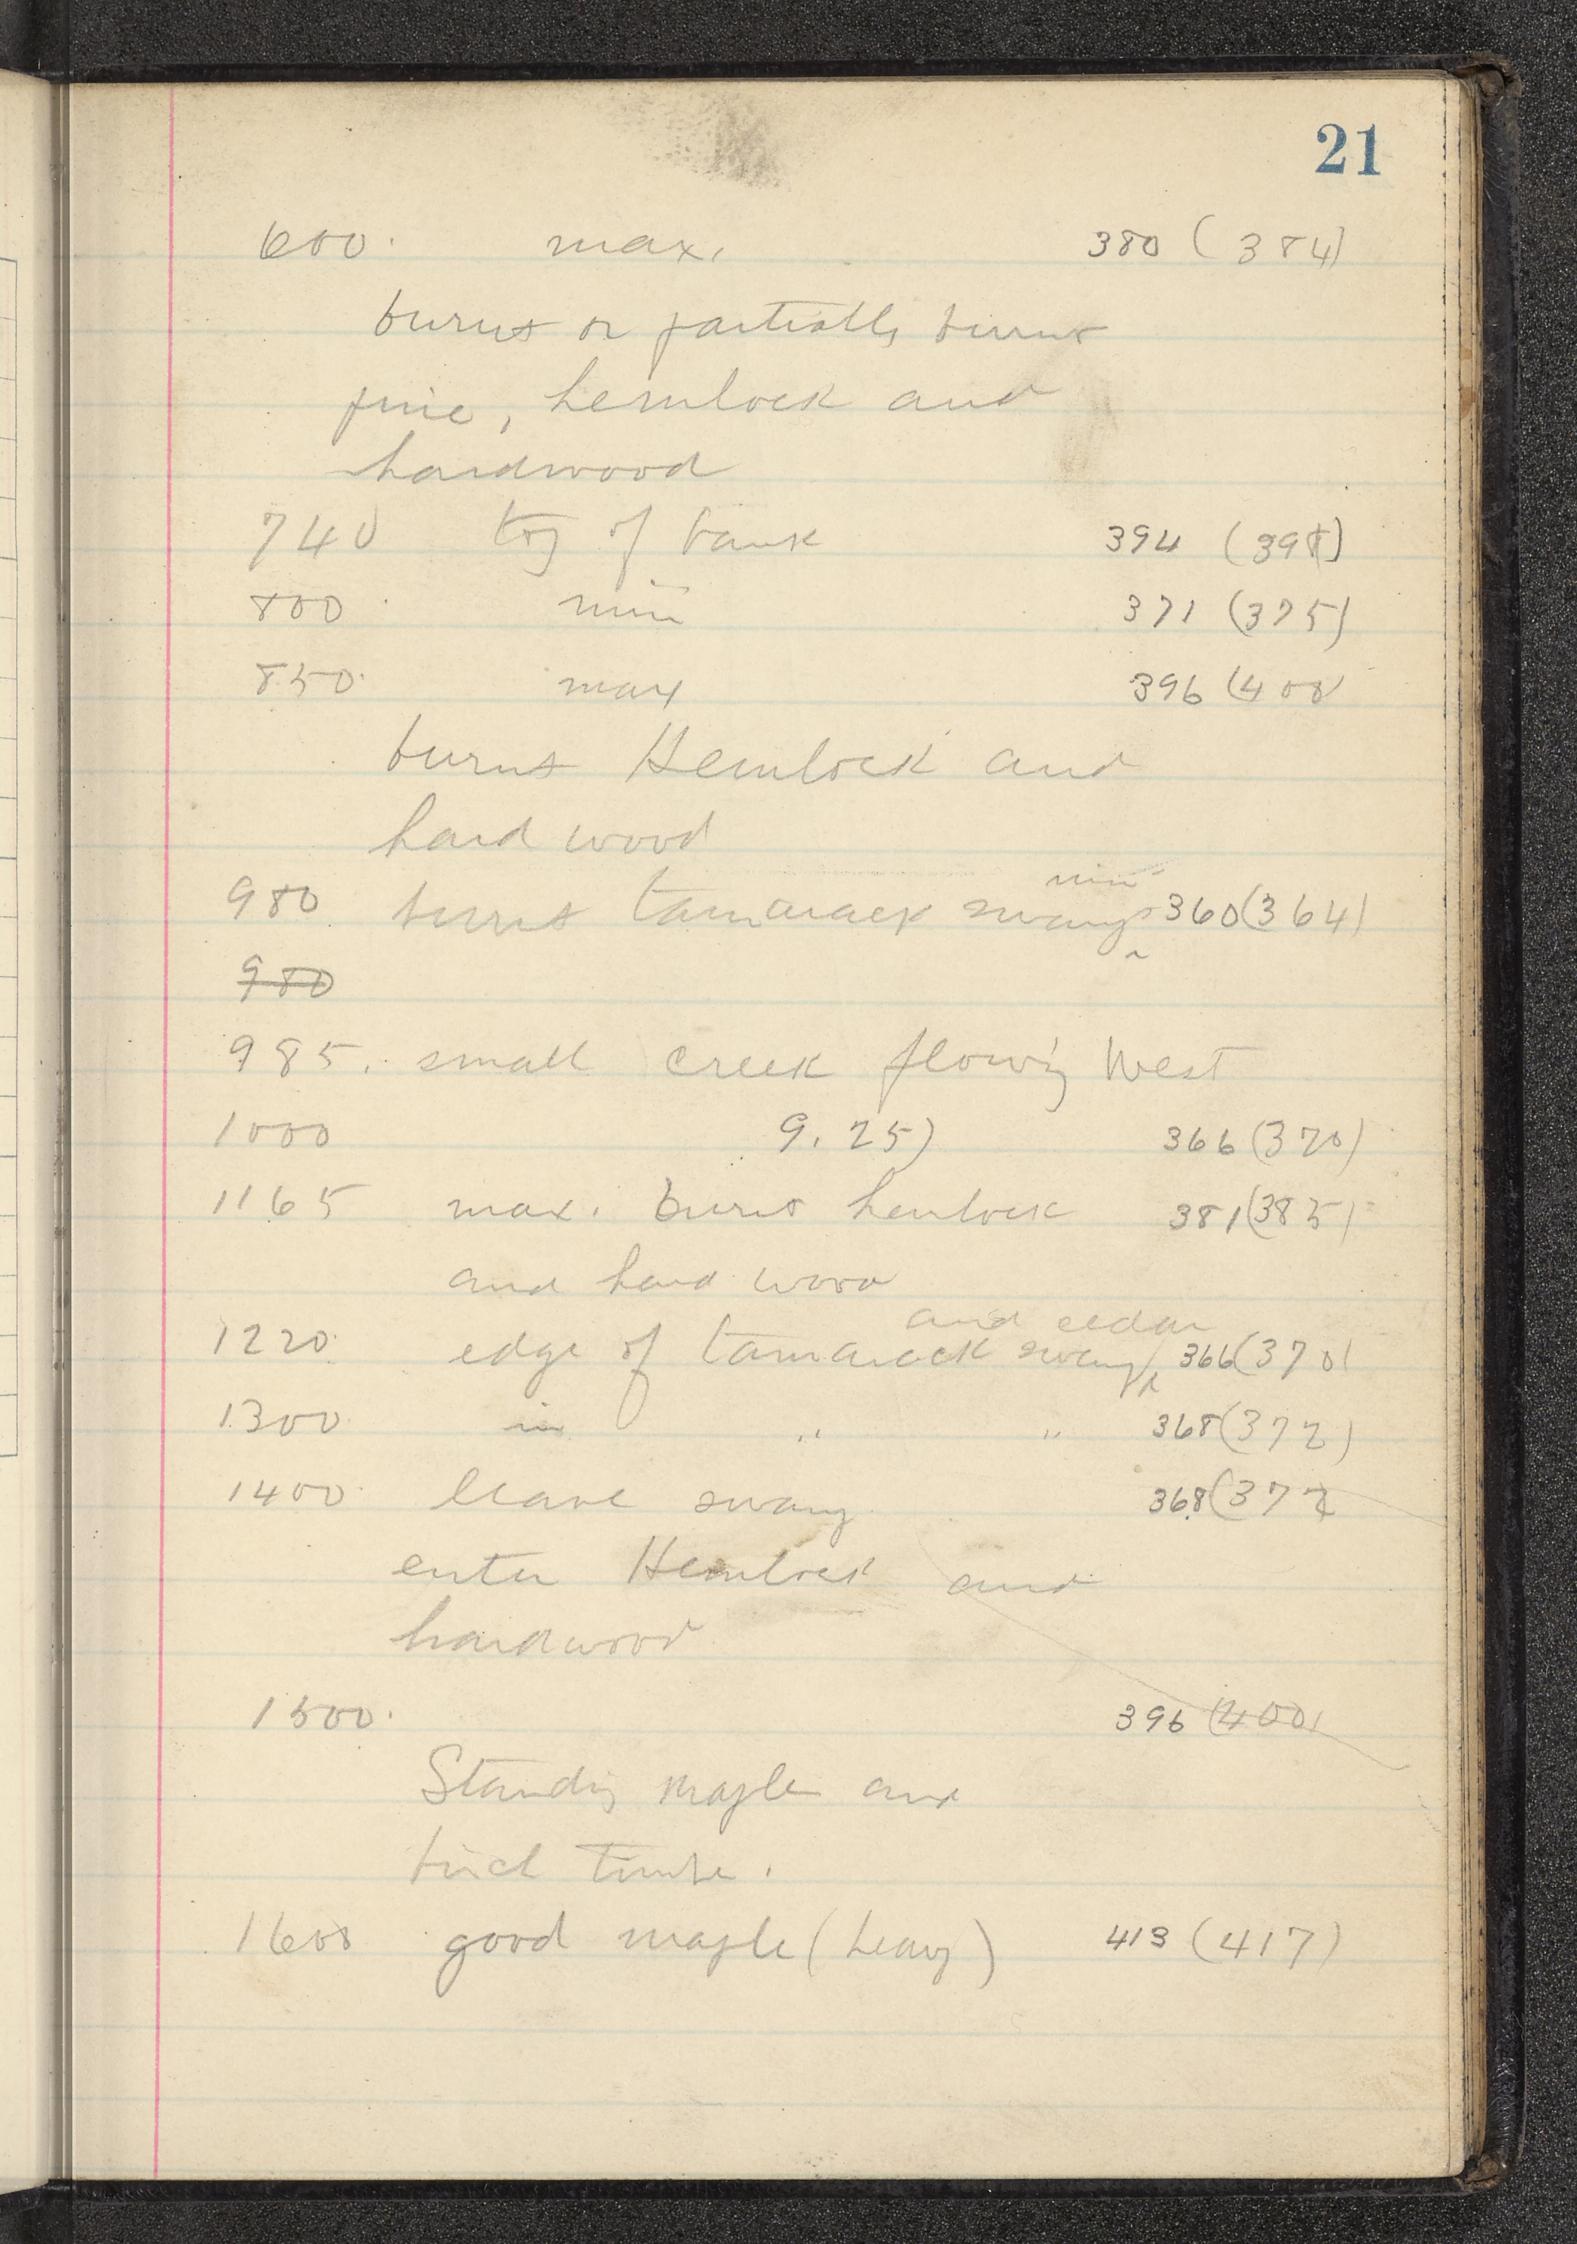 21
600. max. 380 (384)
burnt or partially burnt
pine, hemlock and
hardwood
740 top of bank 394 (398)
800 min 371 (375)
850. max 396 (400
burnt Hemlock and
hard wood
min
980 burnt tamarack swamp ^ 360 (364)
980
985. small creek flowing West
1000 9.25) 366 (370)
1165 max. burnt hemlock 381 (385)
and hard wood
and cedar
1220. edge of tamarack swamp ^ 366 (370)
1300. in " " 368 (372)
1400. leave swamp 368 (372
enter Hemlock and
hardwood
1500. 396 (400)
Standing maple and
birch timber.
1600 good maple (heavy) 413 (417)